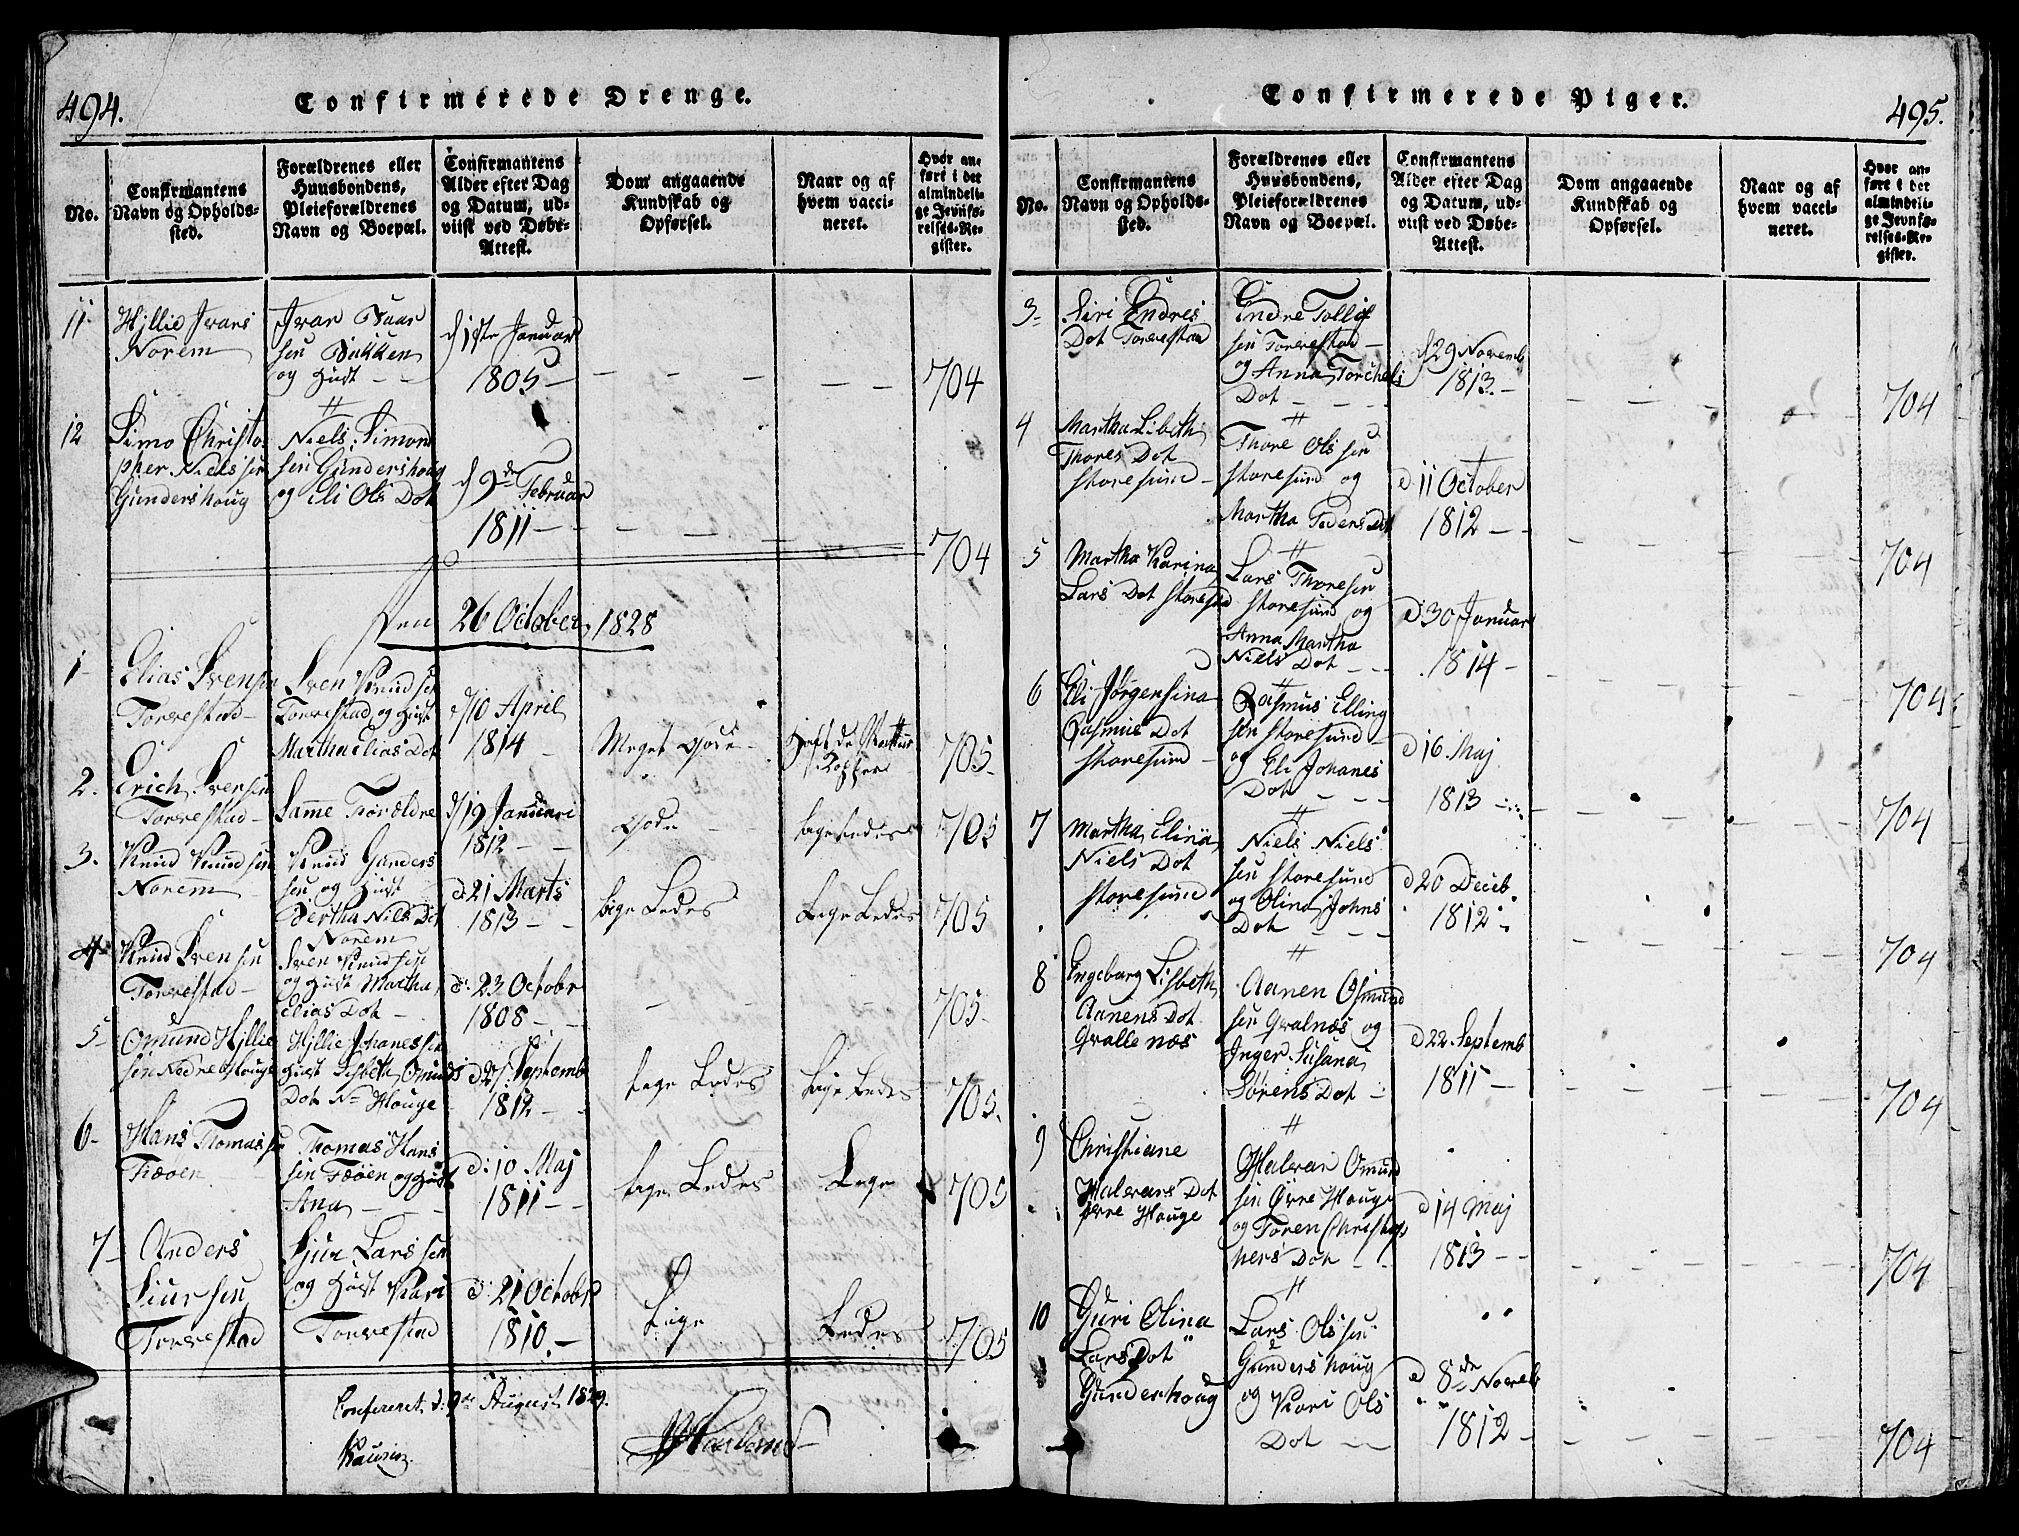 494.
Confirmerede Drenge.
No.
Confirmantens
Navn og Opholds-
sted.
Forældrenes eller
Huusbondens,
Pleieforældrenes
Navn og Boepæl.
Confirmantens
Alder efter Dag
og Datum, ud-
viist ved Døbe-
Attest.
Dom angaaende
Kundskab og
Opførsel.
Naar og af
hvem vacci-
neret.
Hvor an-
ført i det
almindeli-
ge Jevnfø-
relses-Re-
gister.
11
Hillie Ivars
Norem
Ivar
sen Bakken
og Hust - -
d 1ste Januar
1805 -
704
12
Simo Christo
pher Nielssen
Gundershoug
Niels Simon
sen Gundershoug
og Eli Ols Dot
d 9de Februar
1811 -
704
Den 26 October 1828
1-
Elias Svensen
Torvestad-
Sven Knudsen
Torvestad og Hust
Martha Elias Dot
d 10 April
1814 -
Meget Gode
705-
2.
Erich Svensen
Torvestad-
Samme Forældre
d 19 Januari
1812 -
Gode
lage Ledes
705
3.
Knud Knudsen
Norem
Knud Gunders
sen og Hust
Bertha Niels Dot
Norem
d 21 Marts
1813 - -
lige Ledes
Lege Ledes
705
4
Knud Svensen
Torvestad-
Sven Knudsen
og Hust Martha
Elias Dot -
d: 23 Octobr
1808 - -
705-
5-
Omund Hillie
sen Nedre Houge
Hillie Johanessen
Hust Lisbeth Omunds
Dot N= Houge
d 27. Septemb
1812 -
lage Ledes
Lige Ledes
705.
6-
Hans Thomassen
Fæøen
Thomas Hans
sen Fæøen og Hust
Ana - - -
d: 10 Maj
1811 - -
lage Ledes
Lege
705
7-
Anders
Siursen
Torvestad
Sjur Larssen
og Hust Kari
Torvestad
d: 21 Octobr
1810. -
Lige
Ledes
705
Confereret d: 9de August 1829.
495.
Confirmerede Piger.
No.
Confirmantens
Navn og Opholds-
sted.
Forældrenes eller
Huusbondens,
Pleieforældrenes
Navn og Boepæl.
Confirmantens
Alder efter Dag
og Datum, ud-
viist ved Døbe-
Attest.
Dom angaaende
Kundskab og
Opførsel.
Naar og af
hvem vacci-
neret.
Hvor an-
ført i det
almindeli-
ge Jevnfø-
relses-Re-
gister.
3-
Siri Endres
Dot Torvestad
Endre Tollef
sen Torvestad -
og Anna Torchels
Dot - - -
d 29 Novemb
1813. -
704
4
Martha Lisbeth
Thores Dot
Storesund -
Thore Olssen
Storesund og
Martha Peders Dot
d 11 October
1812 - -
704
5
Martha Karina
Lars Dot Storesund
Lars Thoresen
Storesund og
Anna Martha
Niels Dot - -
d 30 Januar
1814 -
704
6
Eli Jørgensina
Rasmus Dot
Storesund -
Rasmus Elling
sen Storesund -
og Eli Johanes
Dot - - -
d 16 Maj
1813 -
704
7
Martha Elina
Niels Dot
Storesund
Niels Niels
sen Storesund
og Olina Johns
Dot - - -
d 20 Deceb
1812 -
704
8
Ingeborg Lisbeth
Aanens Dot
Qvallenæs
Aanen Osmund
sen Qvalnæs og
Inger Susana
Sørens Dot -
d 22 Septemb
1811 -
704
9
Christiane
Halvars Dot
øvre Houge
Halvar Omund
sen Øvre Houge
og Toren Christop
hers Dot - -
d 14 Maj
1813 - -
704
10
Guri Olina
Lars Dot
Gunderhoug
Lars Olssen
Gundershoug
og Kari Ols
Dot - -
d 8de Noveb
1812 -
704